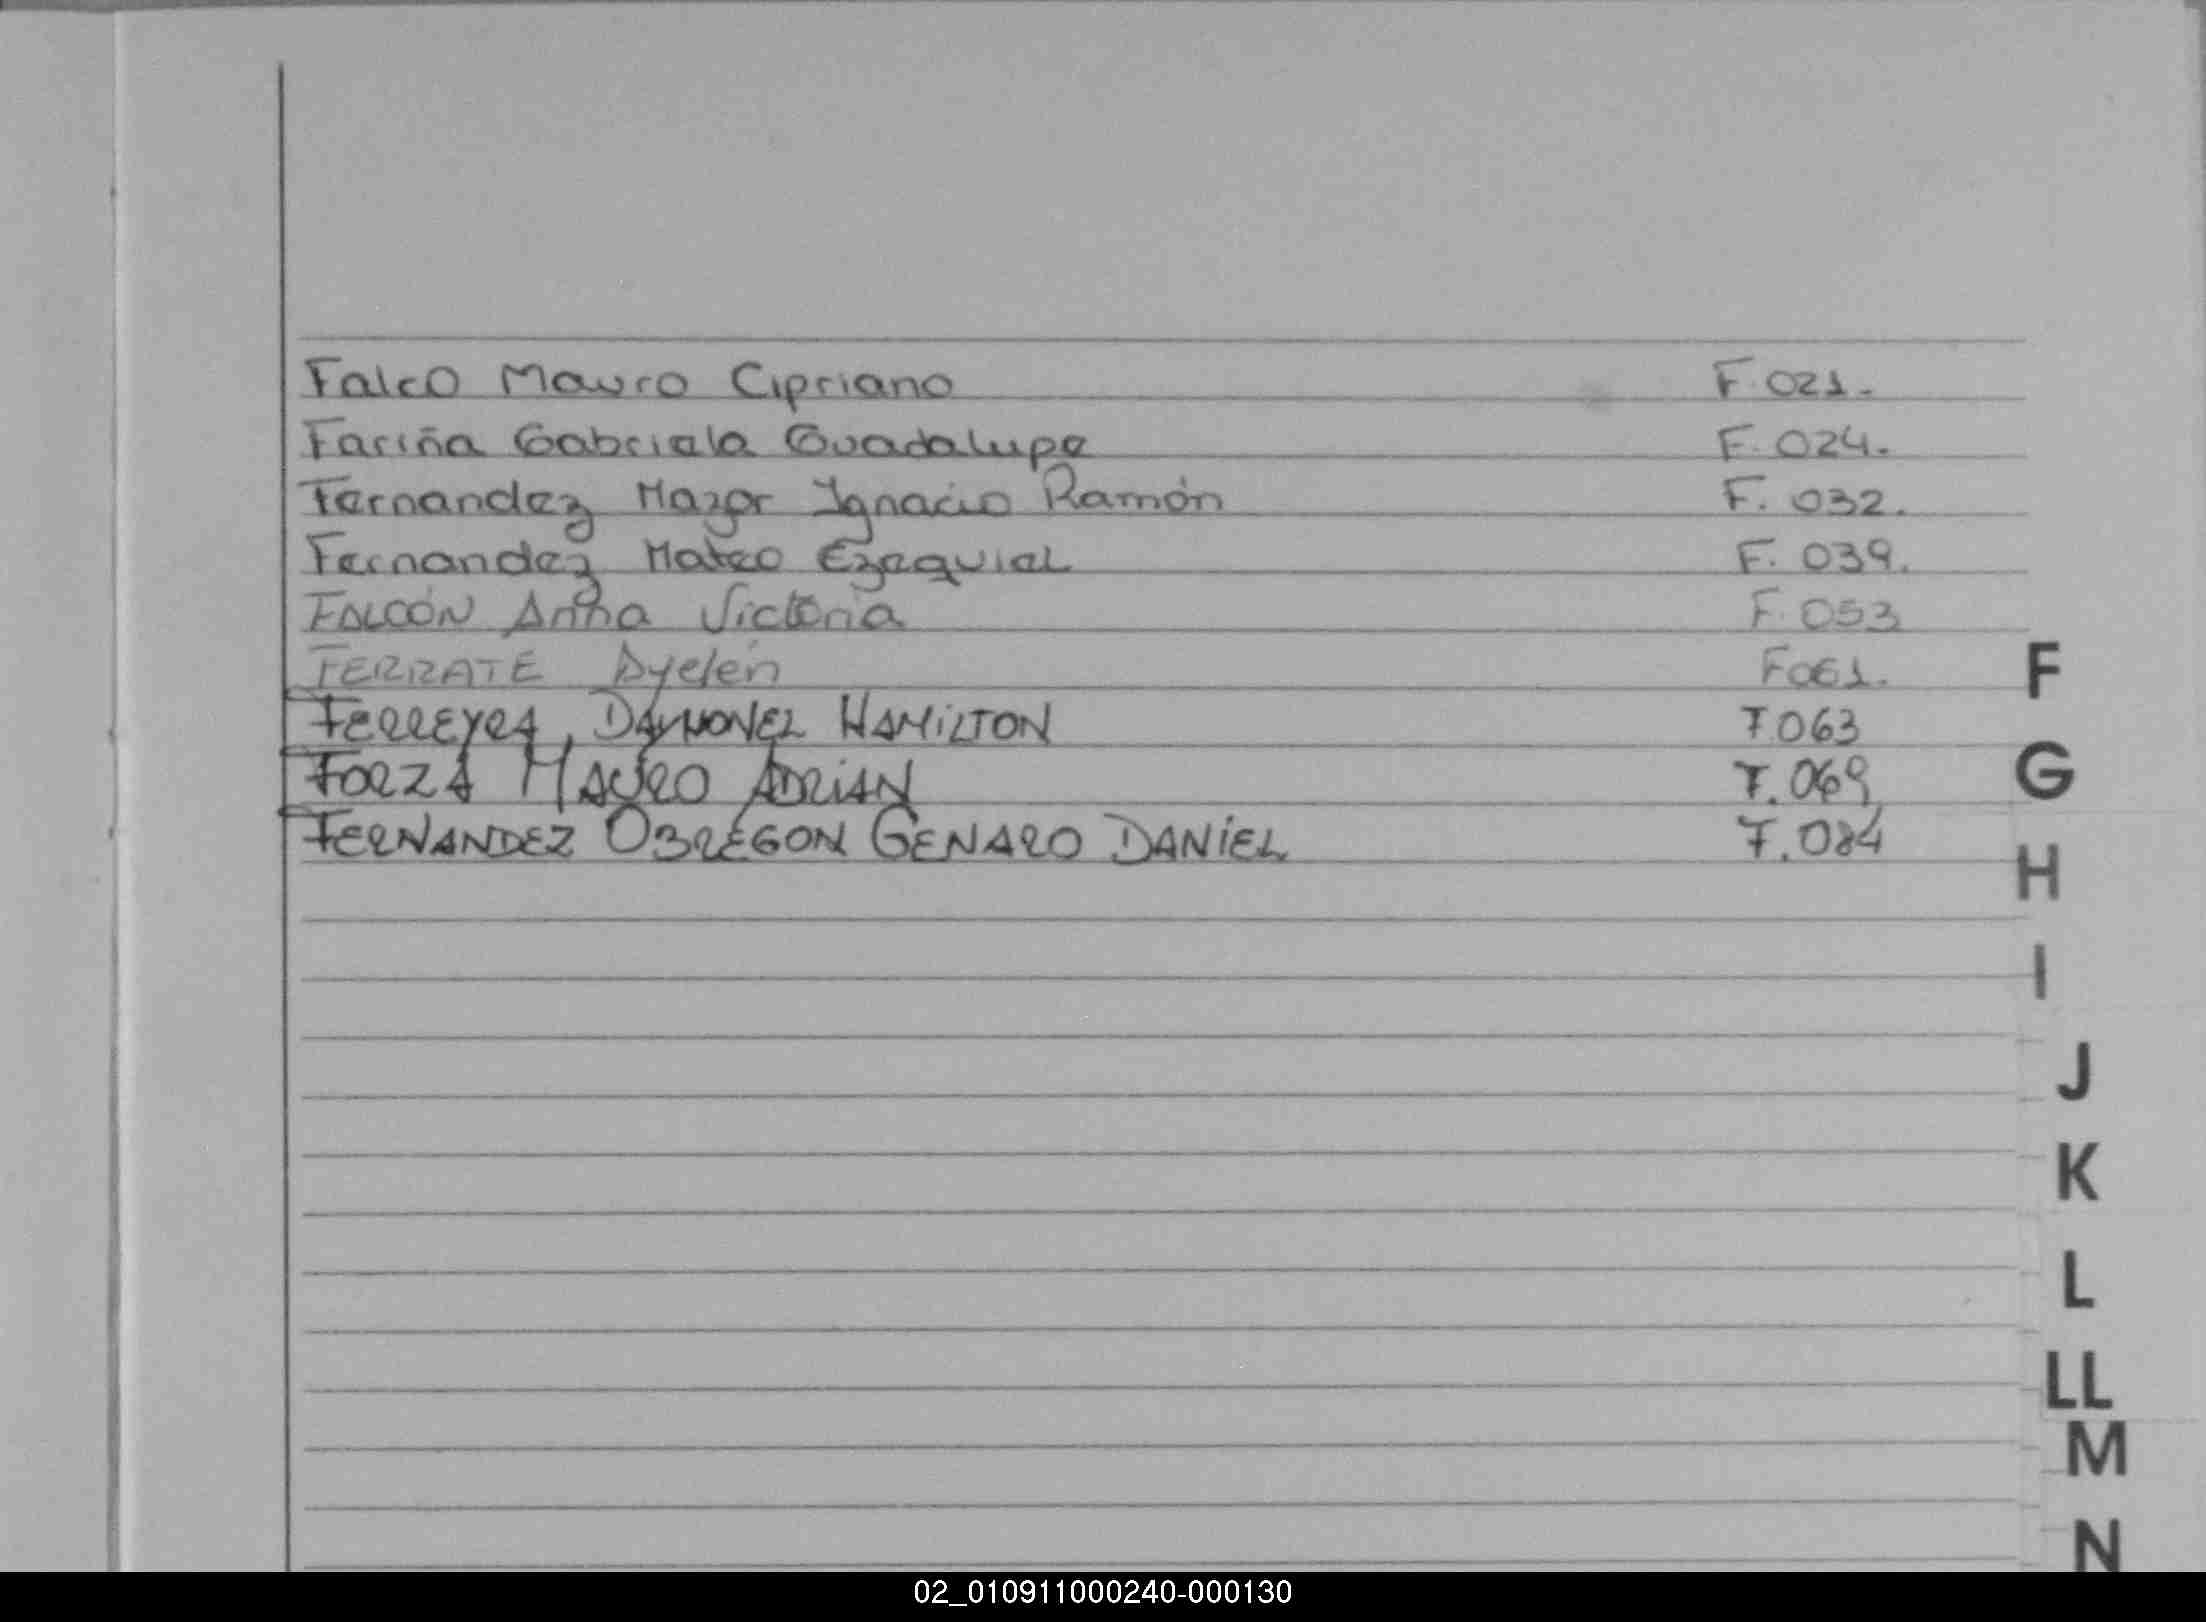 Falco Mauro Cipriano F. 021.
Fariña Gabriela Guadalupe F. 024.
Fernandez Mazor Ignacio Ramón F. 032.
Fernandez Mateo Ezequiel F. 039.
FALCÓN Anna Victoria F. 053
FERRATE Ayelén F061.
FERREYRA, DAYMONEL HAMILTON F063
FORZA MAURO ADRIAN F. 069
FERNANDEZ OBREGON GENARO DANIEL F. 084
F
G
H
I
J
K
L
LL
M
N
02_010911000240-000130